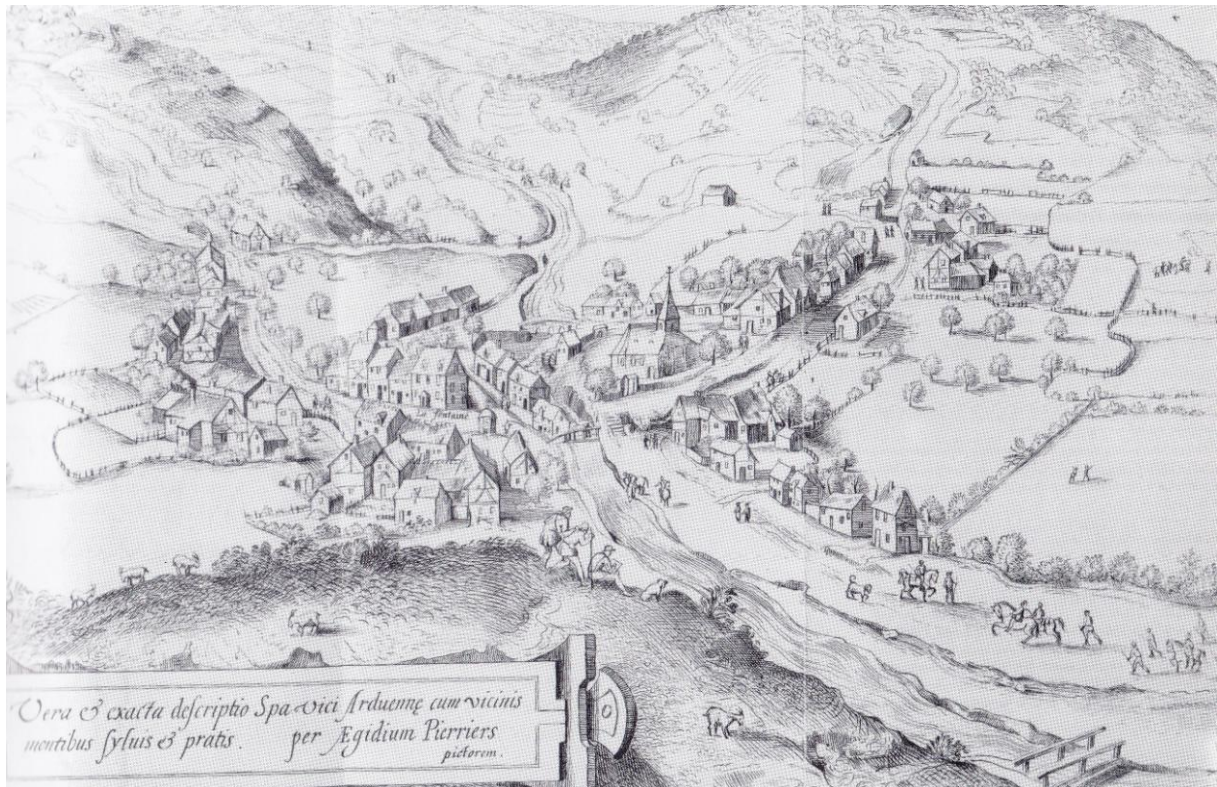 la fontaine
Vera & exacta deſcriptio Spa vici Arduennę cum vicinis
montibus ſyluis & pratis. per Ægidium Pierriers
pictorem.